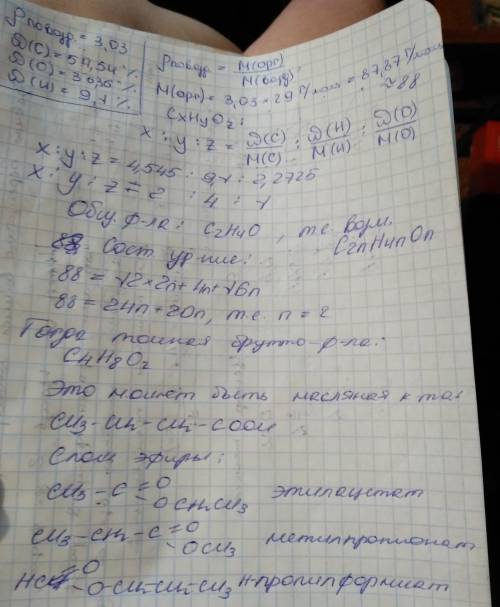 ρповозд. = 3,03
D(C) = 54,54 %
D(O) = 36,36 %
D(H) = 9,1 %
ρповозд. = M(орг) / M(возд)
M(орг) = 3,03 × 29 г/моль = 87,87 г/моль ≈ 88
CxHyOz:
x : y : z = D(C)/M(C) : D(H)/M(H) : D(O)/M(O)
x : y : z = 4,545 : 9,1 : 2,2725
x : y : z = 2 : 4 : 1
Общ. ф-ла: C2H4O, т.е. возм. C2nH4nOn
Сост ур-ние:
88 = 12×2n + 4n + 16n
88 = 24n + 20n, т.е. n = 2
Тогда точная брутто-ф-ла:
C4H8O2
Это может быть масляная к-та:
CH3-CH2-CH2-COOH
Слож эфиры:
CH3-C=O -OCH2CH3 этилацетат
CH3-CH2-C=O -OCH3 метилпропионат
HC=O -O-CH2-CH2-CH3 н-пропилформиат